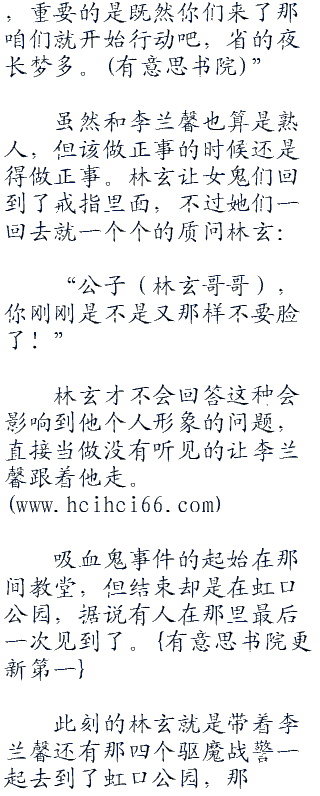 ，重要的是既然你们来了那
咱们就开始行动吧，省的夜
长梦多。(有意思书院)”
虽然和李兰馨也算是熟
人，但该做正事的时候还是
得做正事。林玄让女鬼们回
到了戒指里面，不过她们一
回去就一个个的质问林玄：
“公子（林玄哥哥），
你刚刚是不是又那样不要脸
了！”
林玄才不会回答这种会
影响到他个人形象的问题，
直接当做没有听见的让李兰
馨跟着他走。
(www.hcihci66.com)
吸血鬼事件的起始在那
间教堂，但结束却是在虹口
公园，据说有人在那里最后
一次见到了。{有意思书院更
新第一}
此刻的林玄就是带着李
兰馨还有那四个驱魔战警一
起去到了虹口公园，那